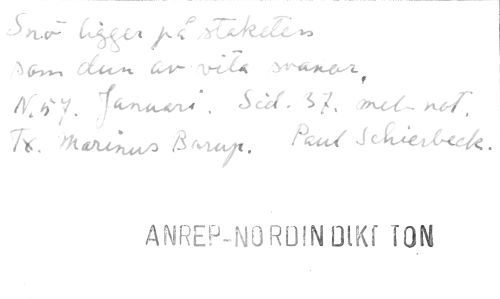 Snö ligger på staketens
som dun av vita svanor.
N.57. Januari. Sid. 37. mel-not.
Tx. Marinus Børup. Paul Schierbeck.
ANREP-NORDIN DIKT TON